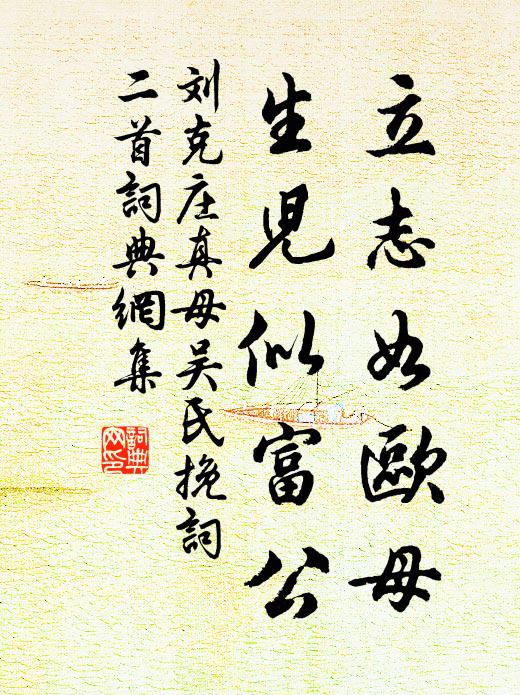 立志如歐母
生児似富公
刘克庄真母吴氏挽詞
二首詞典網集
詞典
网印